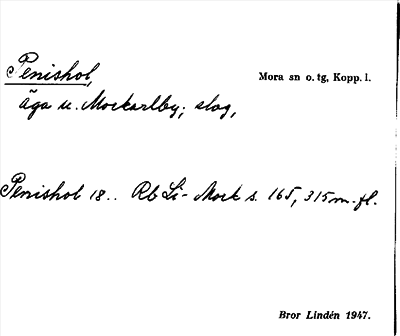 Penishol,
Mora sn o. tg, Kopp. l.
äga u. Mockarlby; slog,
Penishol 18.. Rb Li- Mork s. 165, 315 m. fl.
Bror Lindén 1947.